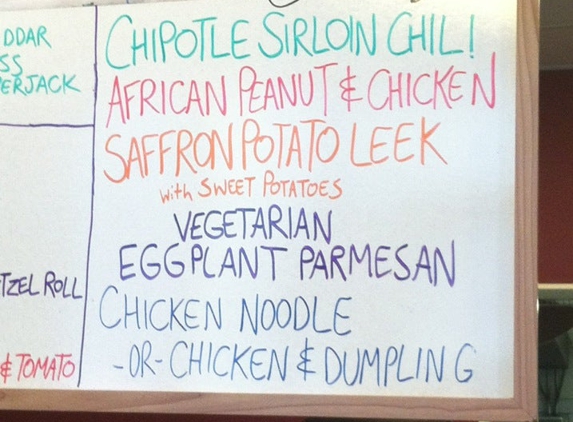 DDAR
SS
ERJACK
TZEL ROLL
& TOMATO
CHIPOTLE SIRLOIN CHILI
AFRICAN PEANUT & CHICKEN
SAFFRON POTATO LEEK
with SWEET POTATOES
VEGETARIAN
EGGPLANT PARMESAN
CHICKEN NOODLE
-OR- CHICKEN & DUMPLING